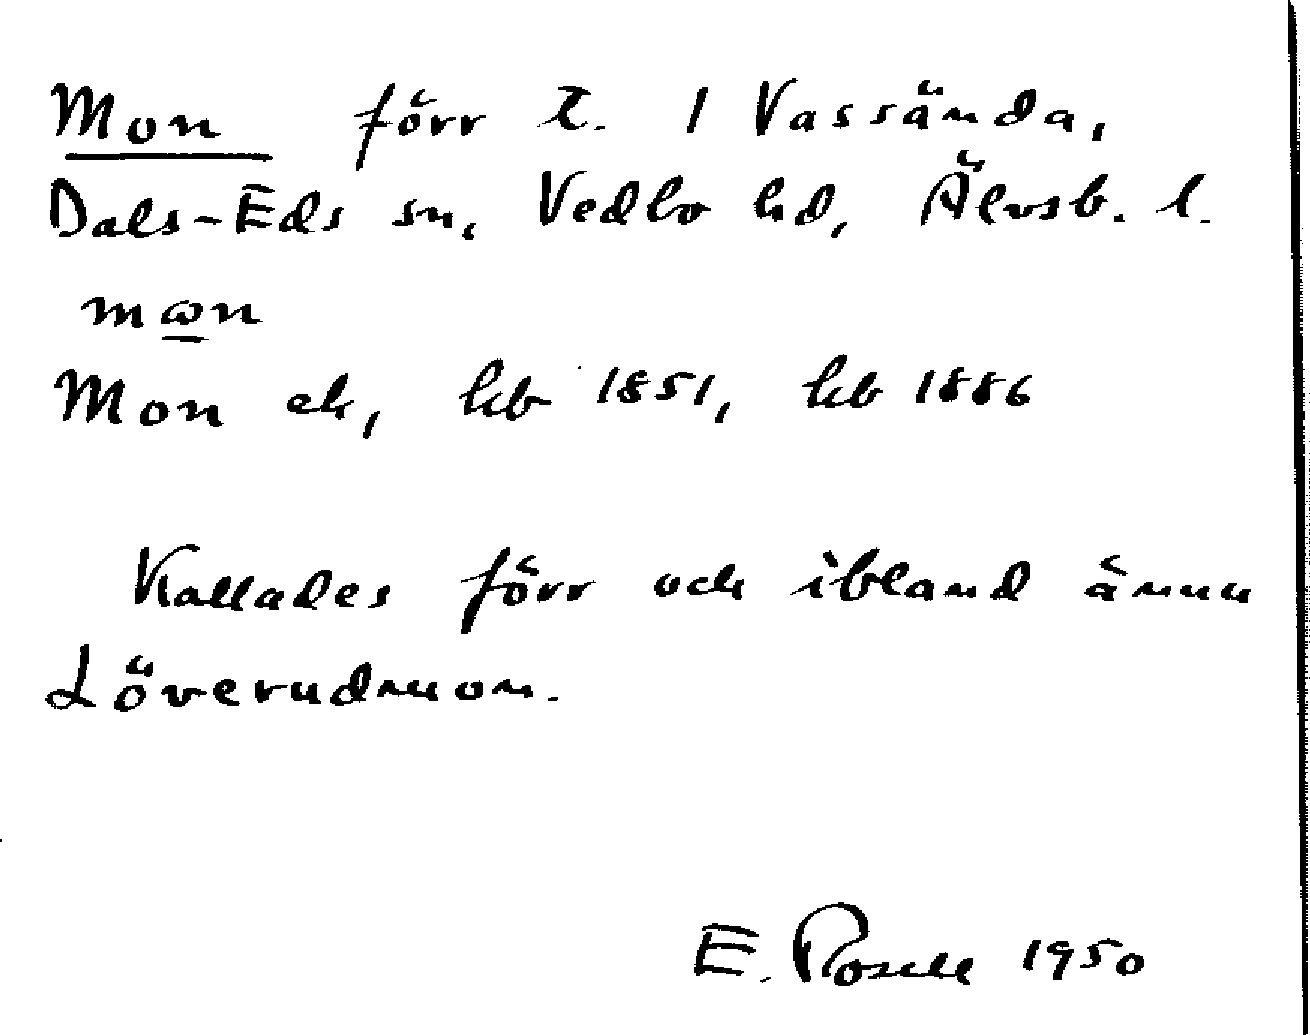 Mon förr t. 1 Vassända,
Dals-Eds sn, Vedbo hd, Älvsb. l.
mωn
Mon ek, kb 1851, kb 1886
Kallades förr och ibland ännu
Löverudmon.
E. 1950